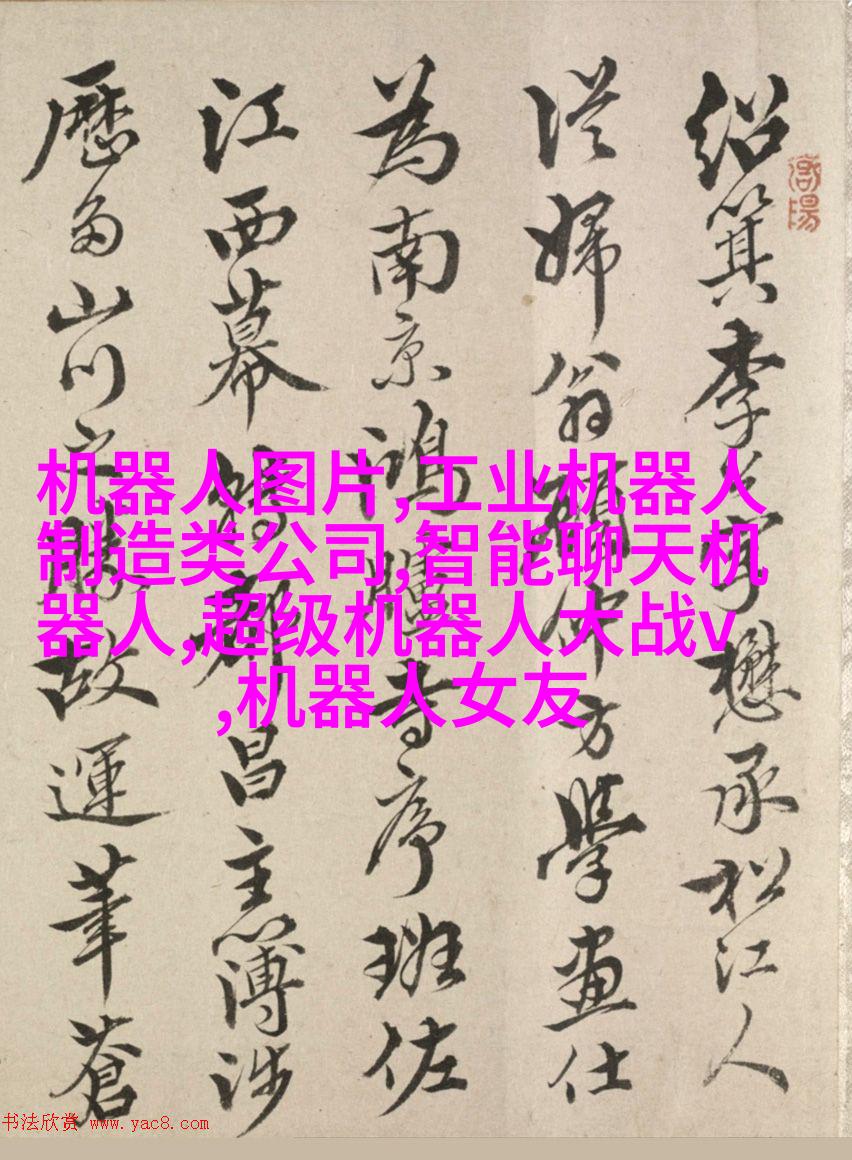 紹箕李公字懋承松江人
從婦翁顧仲方學畫仕
為南京鴻臚寺序班佐
江西幕昌主簿涉
歷多山川之勝故運筆蒼
机器人图片,工业机器人
制造类公司,智能聊天机
器人,超级机器人大战v
,机器人女友
书法欣赏 www.yac8.com